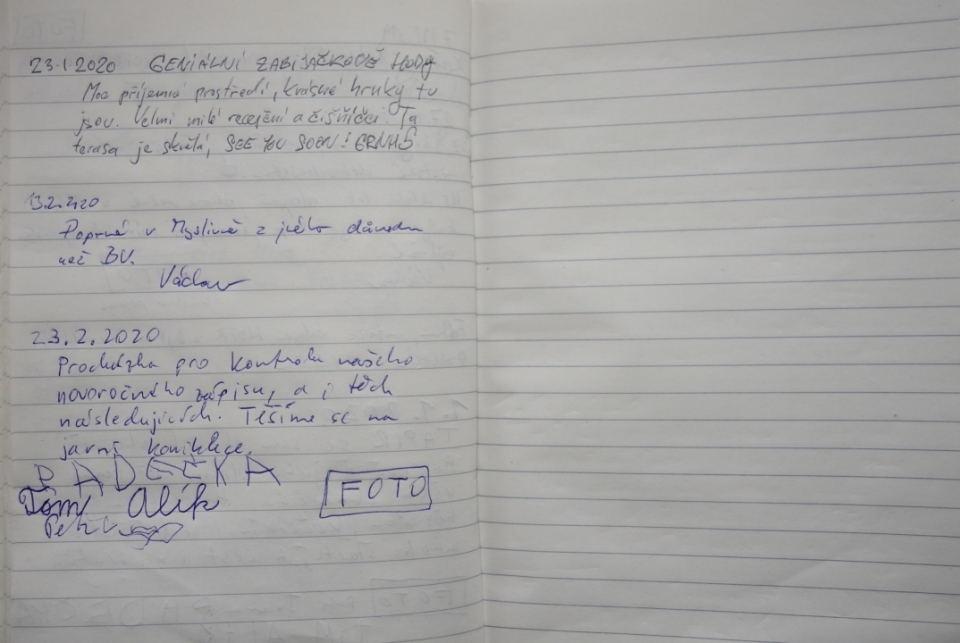 23.1.2020 GENIÁLNÍ ZABIJAČKOVÉ HODY
Moc příjemné prostředí, krásné hruky tu
jsou. Velmi milé recepční a čišníčci Ta
terasa je skvělá, SEE YOU SOON!
13.2.2020
Poprvé v Myslivně z jiného důvodu
než BV.
Václav
23.2.2020
Procházka pro kontrolu našeho
novoročného zápisu, a i těch
následujících. Těšíme se na
jarní koniklece.
RADEČKA
Tom Alík
Petr
FOTO